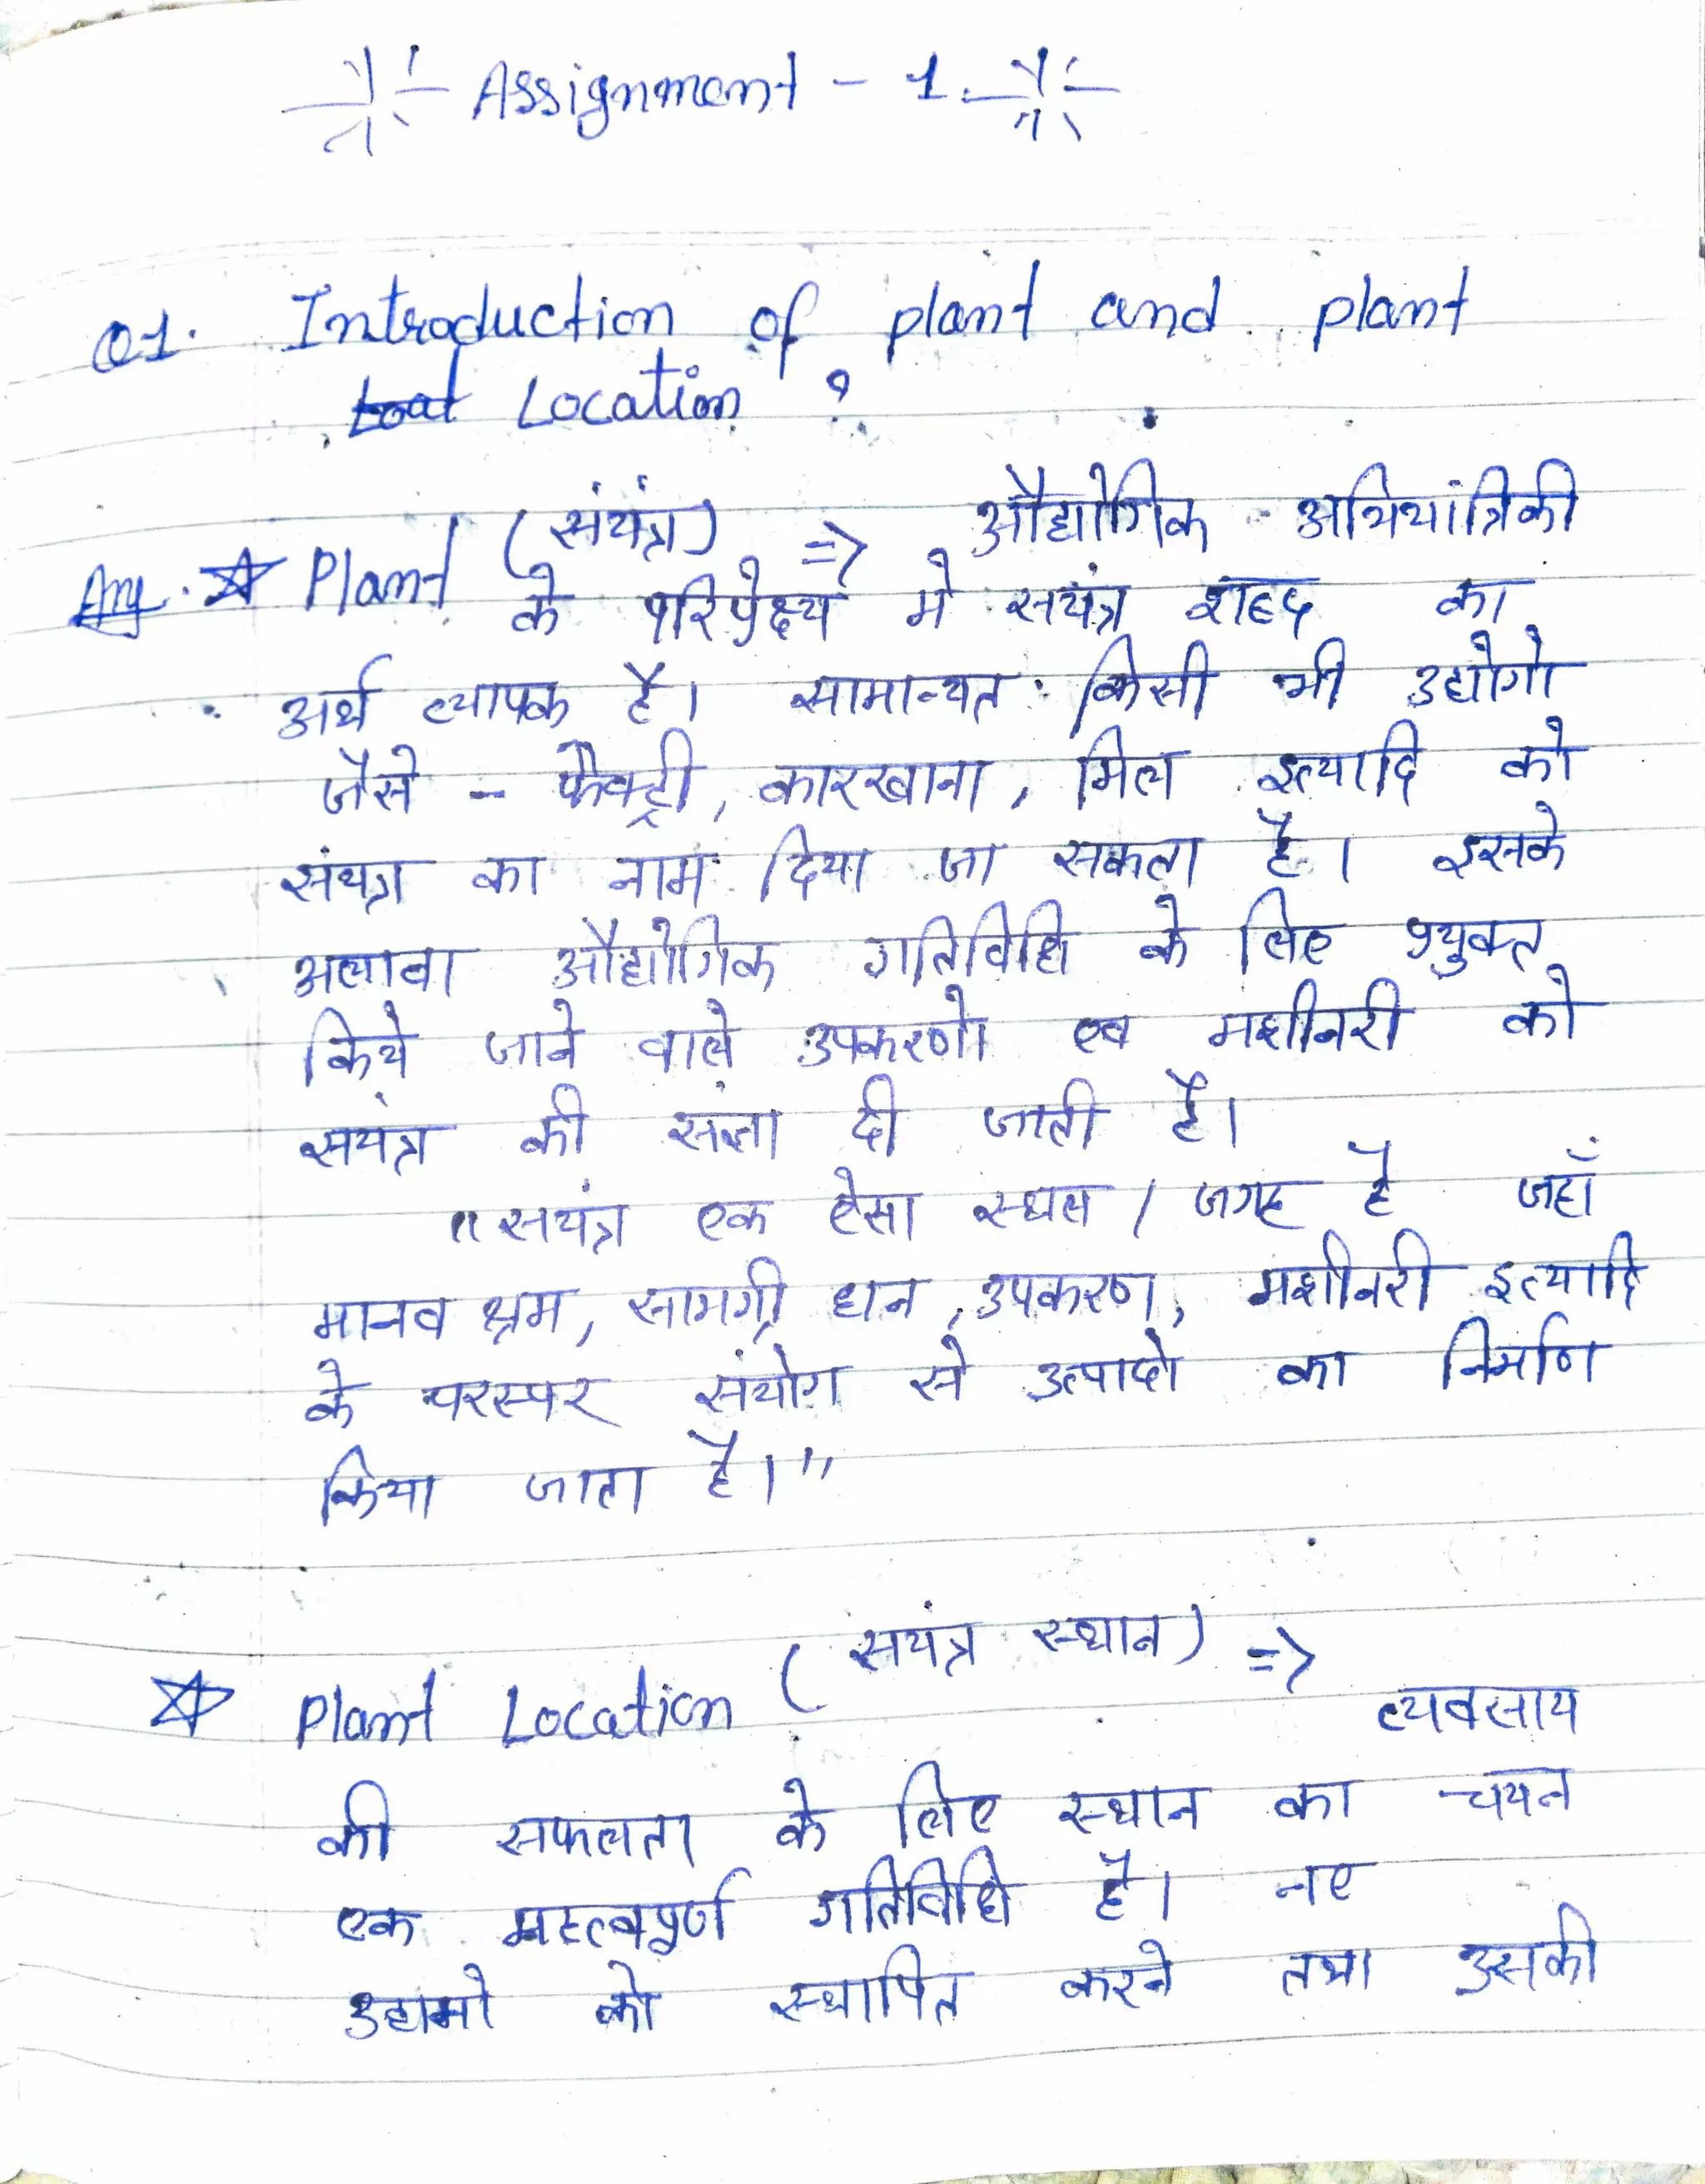 Assignment - 1.
Q1. Introduction of plant and plant
Location ?
Ans. ☆ Plant (संयंत्र) => औद्योगिक अभियांत्रिकी
के परिप्रेक्ष्य मे सयंत्र शब्द का
अर्थ व्यापक है। सामान्यत: किसी भी उद्योगो
जैसे - फैक्ट्री, कारखाना, मिल इत्यादि को
संयत्र का नाम दिया जा सकता है। इसके
अलावा औद्योगिक गतिविधि के लिए प्रयुक्त
किये जाने वाले उपकरणो एव मशीनरी को
सयंत्र की संज्ञा दी जाती है।
"सयंत्र एक ऐसा स्थल / जगह है जहाँ
मानव श्रम, सामग्री धन, उपकरण, मशीनरी इत्यादि
के परस्पर संयोग से उत्पादो का निर्माण
किया जाता है।"
☆ Plant Location (सयंत्र स्थान) =>
व्यवसाय
की सफलता के लिए स्थान का चयन
एक महत्वपूर्ण गतिविधि है। नए
उद्यमो को स्थापित करने तथा उसकी